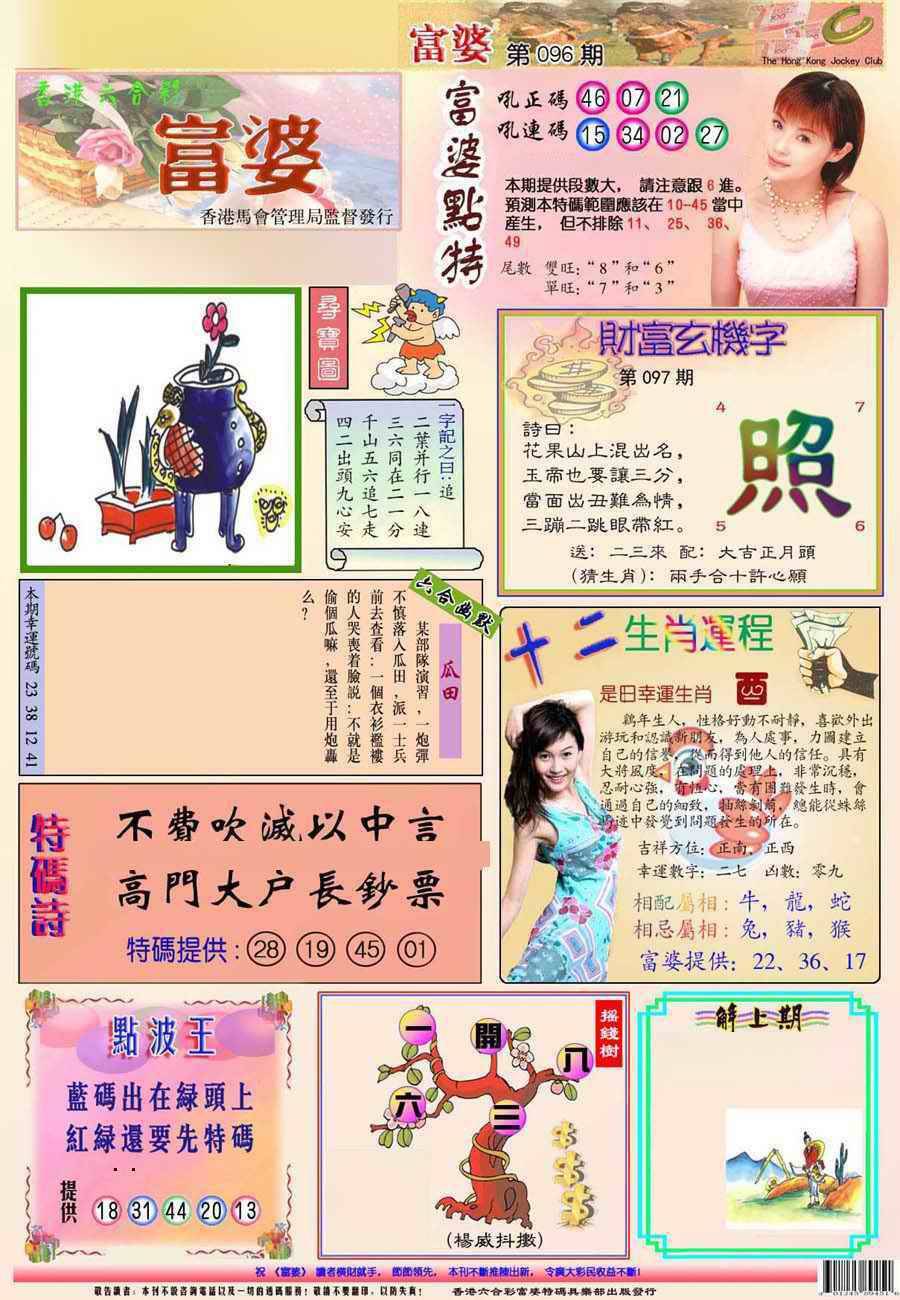 富婆 第096期
The Hong Kong Jockey Club
香港六合彩
富婆
香港馬會管理局監督發行
富婆點特
吼正碼 46 07 21
吼連碼 15 34 02 27
本期提供段數大， 請注意跟6進。
預測本特碼範圍應該在10-45當中
産生， 但不排除11、 25、 36、
49
尾數 雙旺:“8”和“6”
單旺:“7”和“3”
尋寶圖
一字記之曰:追
二葉并行一八連
三六同在二一分
千山五六追七走
四二出頭九心安
財富玄機字
第097期
4 7
照
5 6
詩曰:
花果山上混出名，
玉帝也要讓三分，
當面出丑難為情，
三蹦二跳眼帶紅。
送: 二三來 配: 大吉正月頭
(猜生肖): 兩手合十許心願
六合幽默
瓜田
某部隊演習，一炮彈
不慎落入瓜田，派一士兵
前去查看:一個衣衫襤褸
的人哭喪着臉説:不就是
偷個瓜嘛，還至于用炮轟
么?
本期幸運號碼 23 38 12 41
十二生肖運程
是日幸運生肖 酉
鷄年生人，性格好動不耐靜，喜歡外出
游玩和認識新朋友，為人處事，力圖建立
自己的信譽，從而得到他人的信任。具有
大將風度，在問題的處理上，非常沉穩，
忍耐心強，有恆心，當有困難發生時，會
通過自己的細致，抽絲剝繭，總能從蛛絲
馬迹中發覺到問題發生的所在。
吉祥方位: 正南、正西
幸運數字: 二七 凶數: 零九
相配屬相: 牛，龍，蛇
相忌屬相: 兔，豬，猴
富婆提供: 22、36、17
特碼詩
不費吹滅以中言
高門大户長鈔票
特碼提供: 28 19 45 01
點波王
藍碼出在緑頭上
紅緑還要先特碼
提供 18 31 44 20 13
摇錢樹
一 開 八
六 三
(楊威抖擻)
解上期
祝 《富婆》 讀者橫財就手， 節節領先， 本刊不斷推陳出新， 令廣大彩民收益不斷!
敬告讀者: 本刊不設咨詢電話以及一切的透碼服務! 敬請不要翻印，以防失真! 香港六合彩富婆特碼俱樂部出版發行